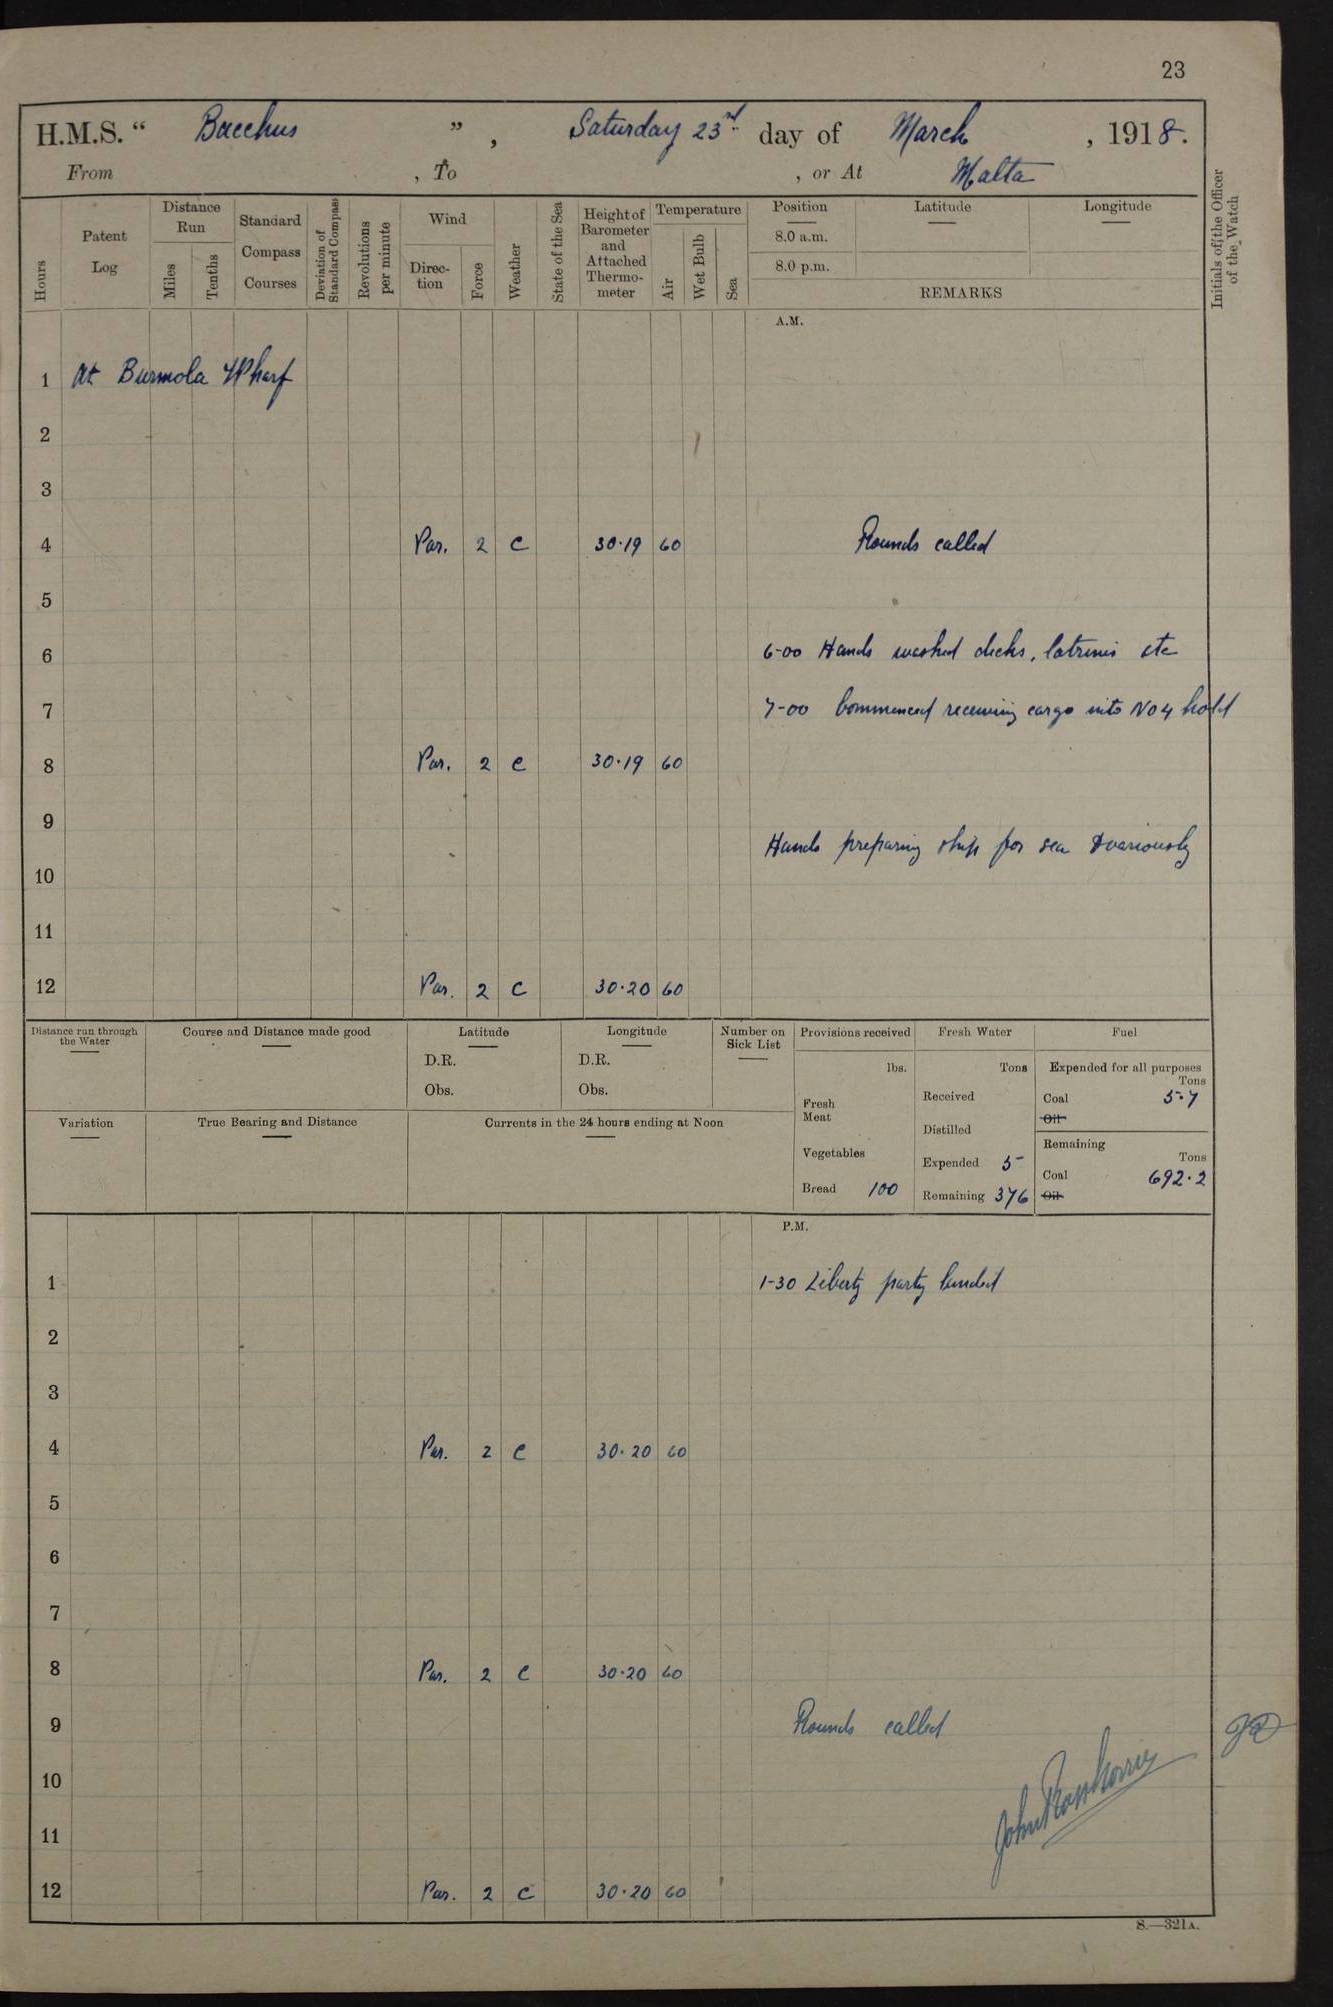 23
H.M.S. “ Bacchus ” , Saturday 23rd day of March , 1918.
From , To , or At Malta
Hours
Patent Log
Distance Run
Miles
Tenths
Standard Compass Courses
Deviation of Standard Compass
Revolutions per minute
Wind
Direc-tion
Force
Weather
State of the Sea
Height of Barometer and Attached Thermo-meter
Temperature
Air
Wet Bulb
Sea
Position
8.0 a.m.
8.0 p.m.
Latitude
Longitude
REMARKS
Initials of the Officer of the Watch
A.M.
1 At Burmola Wharf
2
3
4 Var. 2 c 30.19 60 Rounds called
5
6 6-00 Hands washed decks, latrines etc
7 7-00 Commenced receiving cargo into No 4 hold
8 Var. 2 c 30.19 60
9
Hands preparing ship for sea & variously
10
11
12 Var. 2 c 30.20 60
Distance run through the Water
Course and Distance made good
Latitude
D.R.
Obs.
Longitude
D.R.
Obs.
Number on Sick List
Provisions received
lbs.
Fresh Meat
Vegetables
Bread 100
Fresh Water
Tons
Received
Distilled
Expended 5
Remaining 376
Fuel
Expended for all purposes
Tons
Coal 5.7
Oil
Remaining
Tons
Coal 692.2
Oil
Variation
True Bearing and Distance
Currents in the 24 hours ending at Noon
P.M.
1 1-30 Liberty party landed
2
3
4 Var. 2 c 30.20 60
5
6
7
8 Var. 2 c 30.20 60
9 Rounds called
10
11
12 Var. 2 c 30.20 60
S.—321A.